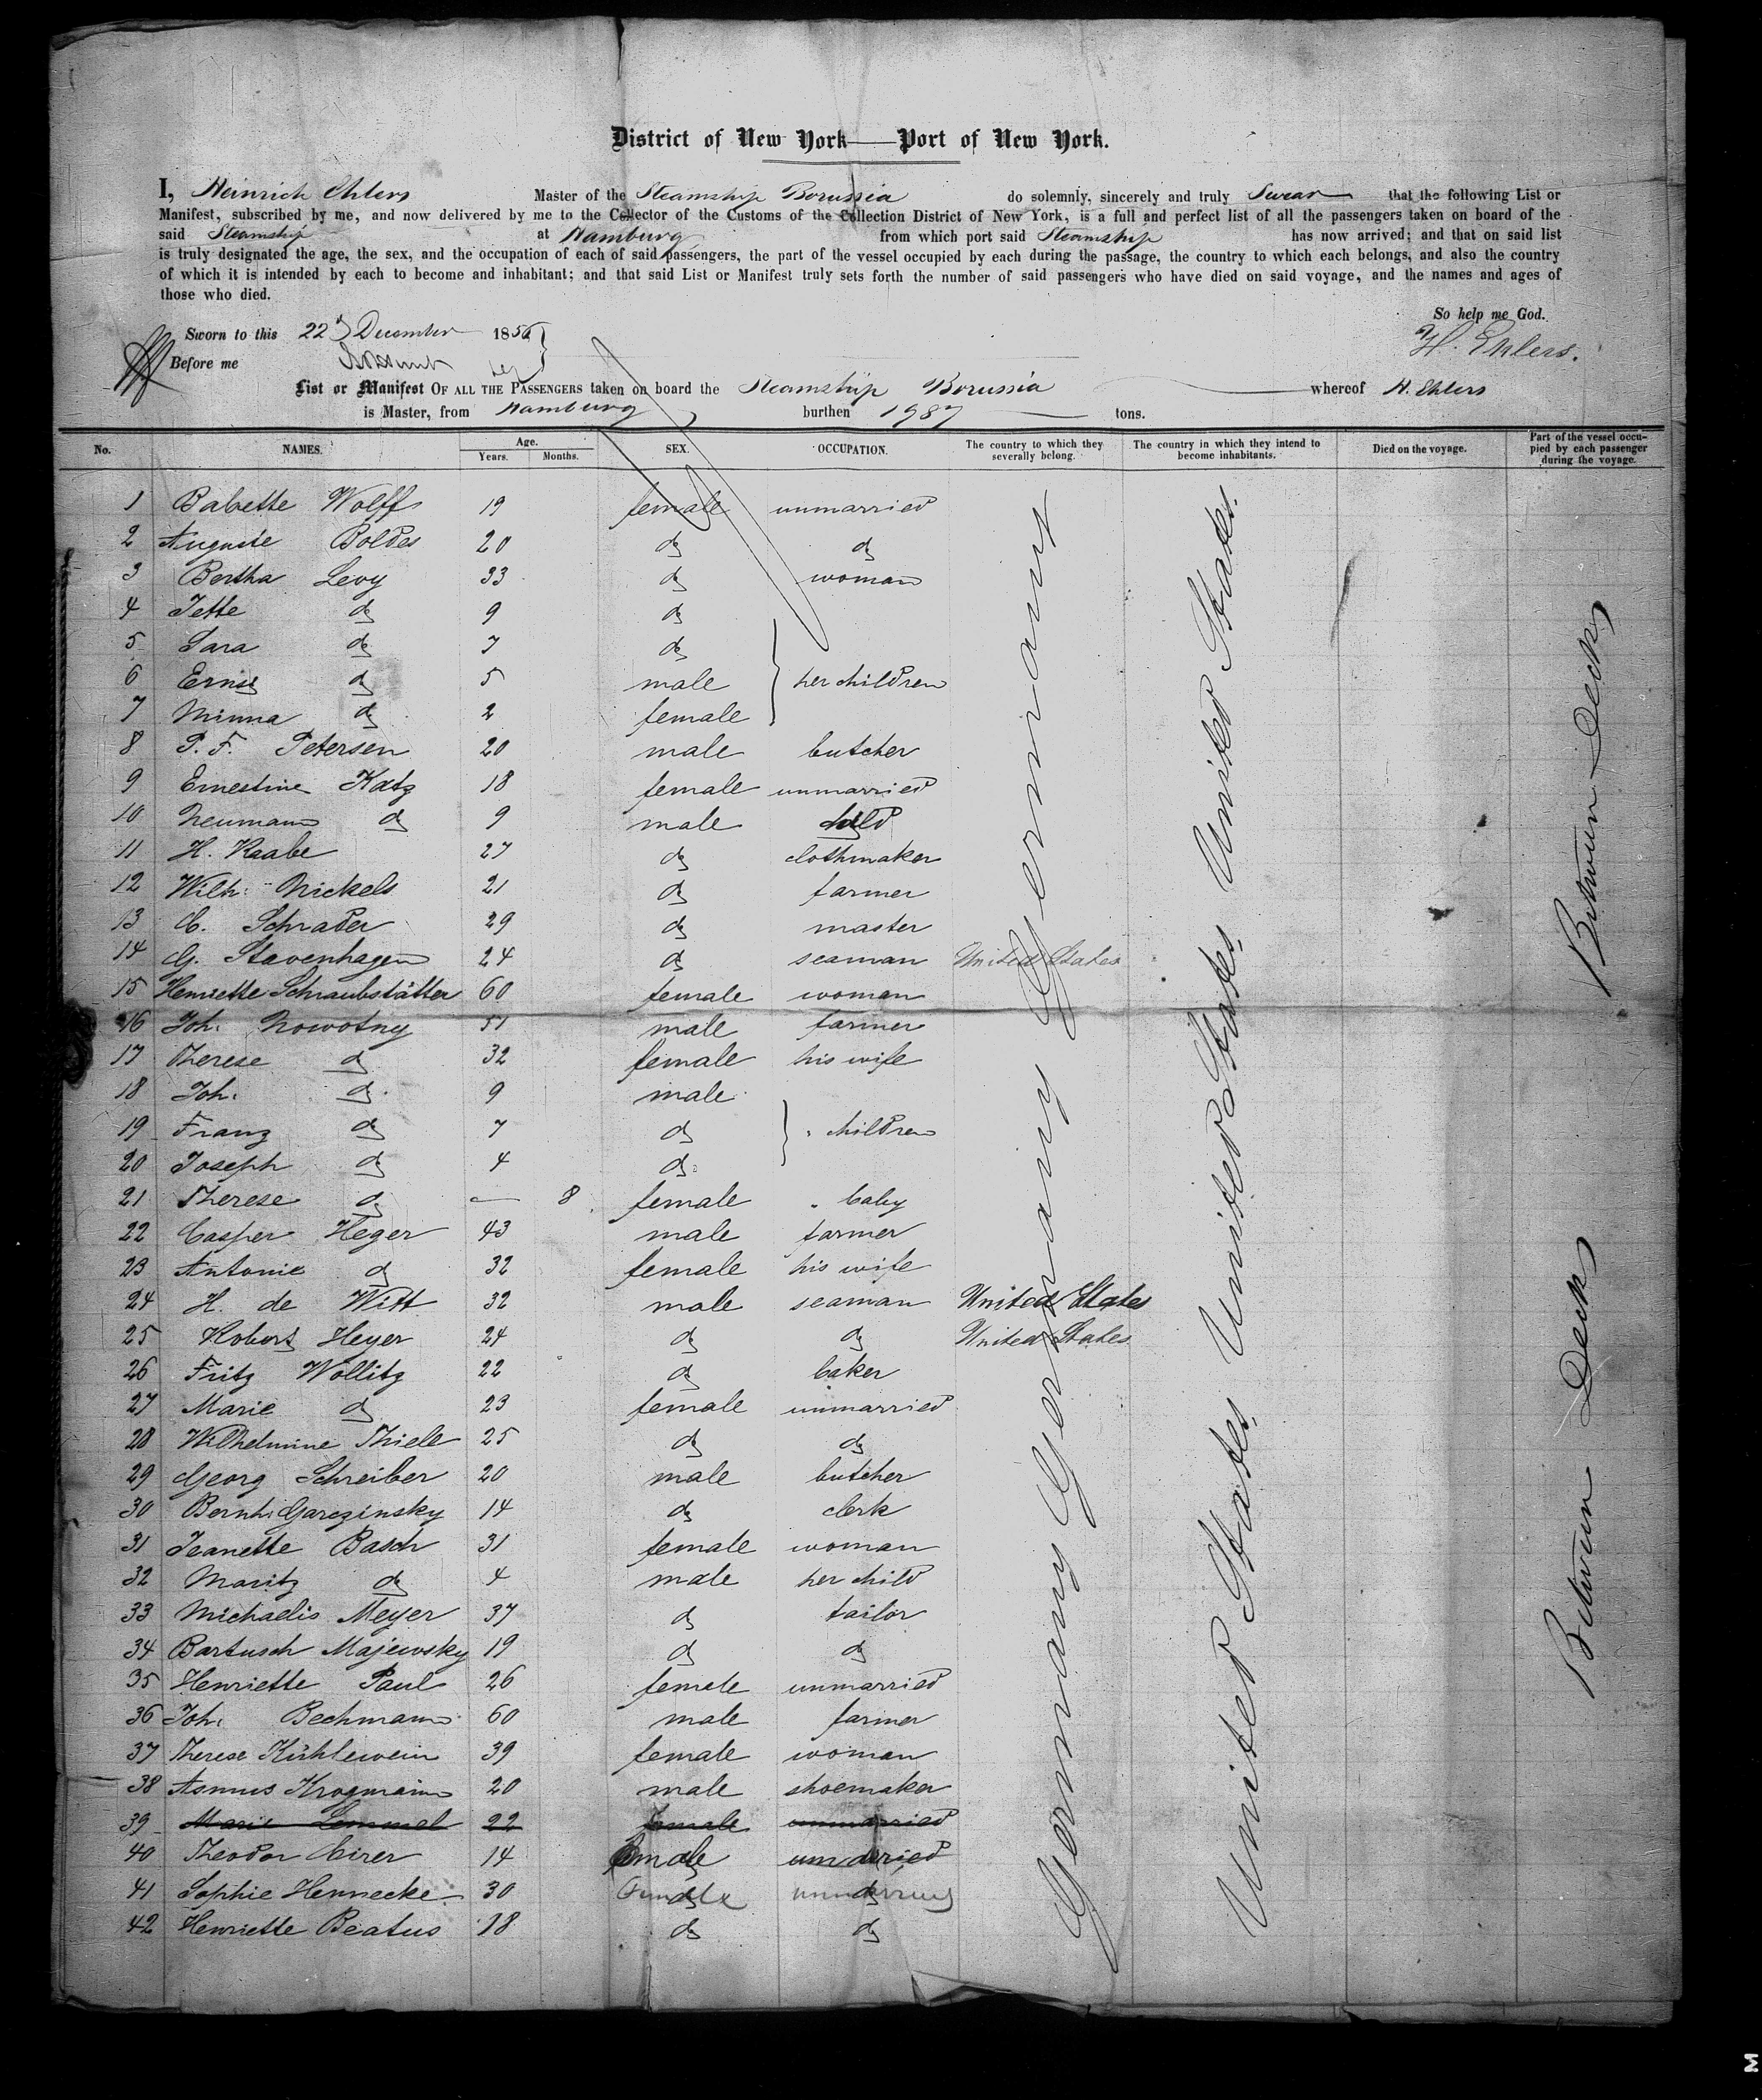 District of New York — Port of New York.
I, Heinrich Ehlers Master of the Steamship Borussia do solemnly, sincerely and truly Swear that the following List or
Manifest, subscribed by me, and now delivered by me to the Collector of the Customs of the Collection District of New York, is a full and perfect list of all the passengers taken on board of the
said Steamship at Hamburg from which port said Steamship has now arrived; and that on said list
is truly designated the age, the sex, and the occupation of each of said passengers, the part of the vessel occupied by each during the passage, the country to which each belongs, and also the country
of which it is intended by each to become and inhabitant; and that said List or Manifest truly sets forth the number of said passengers who have died on said voyage, and the names and ages of
those who died.
So help me God.
Sworn to this 22d December 1856
H. Ehlers.
Before me
List or Manifest OF ALL THE PASSENGERS taken on board the Steamship Borussia whereof H. Ehlers
is Master, from Hamburg, burthen 1987 tons.
No. NAMES. Age. Years. Months. SEX. OCCUPATION. The country to which they severally belong. The country in which they intend to become inhabitants. Died on the voyage. Part of the vessel occupied by each passenger during the voyage.
1 Babette Wolff 19 female unmarried
2 Auguste Boldes 20 do do
3 Bertha Levy 33 do woman
4 Jette do 9 do
5 Sara do 7 do
6 Ernst do 5 male her children
7 Minna do 2 female
8 P. F. Petersen 20 male butcher
9 Ernestine Katz 18 female unmarried
10 Neumann do 9 male child
11 H. Raabe 27 do clothmaker
12 Wilh. Nickels 21 do farmer
13 C. Schrader 29 do master
14 G. Stavenhagen 24 do seaman United States
15 Henriette Schraubstätter 60 female woman
16 Joh. Nowotny 51 male farmer
17 Therese do 32 female his wife
18 Joh. do 9 male
19 Franz do 7 do " children
20 Joseph do 4 do
21 Therese do — 8 female " baby
22 Casper Heger 43 male farmer
23 Antonie do 32 female his wife
24 H. de Witt 32 male seaman United States
25 Robert Heyer 24 do do United States
26 Fritz Wollitz 22 do baker
27 Marie do 23 female unmarried
28 Wilhelmine Thiele 25 do do
29 Georg Schreiber 20 male butcher
30 Bernh. Garezinsky 14 do clerk
31 Jeanette Basch 31 female woman
32 Moritz do 4 male her child
33 Michaelis Meyer 37 do tailor
34 Bartusch Majewsky 19 do do
35 Henriette Paul 26 female unmarried
36 Joh. Bechmann 60 male farmer
37 Therese Kühlewein 39 female woman
38 Asmus Krogmann 20 male shoemaker
39 Marie Lemmel 22 female unmarried
40 Theodor 14 male
41 Sophie Hennecke 30 Female unmarried
42 Henriette Beatus 18 do do
Germany Germany Germany
United States United States United States
Between Deck Between Deck
M